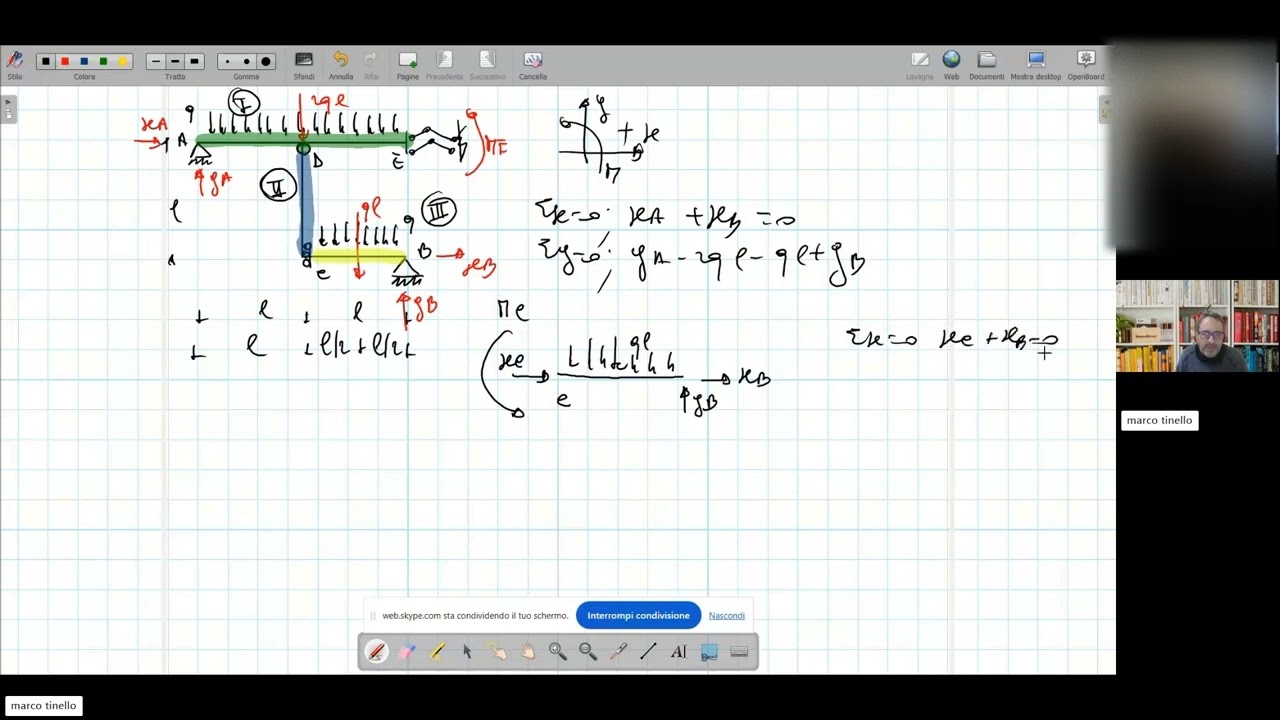 Stilo
Colore
Tratto
Gomma
Sfondi
Annulla
Rifai
Pagine
Precedente
Successivo
Cancella
Lavagna
Web
Documenti
Mostra desktop
OpenBoard
I
2qℓ
q
xA
A
D
E
ME
yA
II
ℓ
qℓ
III
q
B
xB
C
yB
ℓ ℓ
ℓ ℓ/2 ℓ/2
y
+ x
M
Σx=0; xA + xB = 0
Σy=0; yA - 2qℓ - qℓ + yB
MC
xC
qℓ
xB
C
yB
Σx=0 xC + xB = 0
marco tinello
web.skype.com sta condividendo il tuo schermo.
Interrompi condivisione
Nascondi
AI
marco tinello